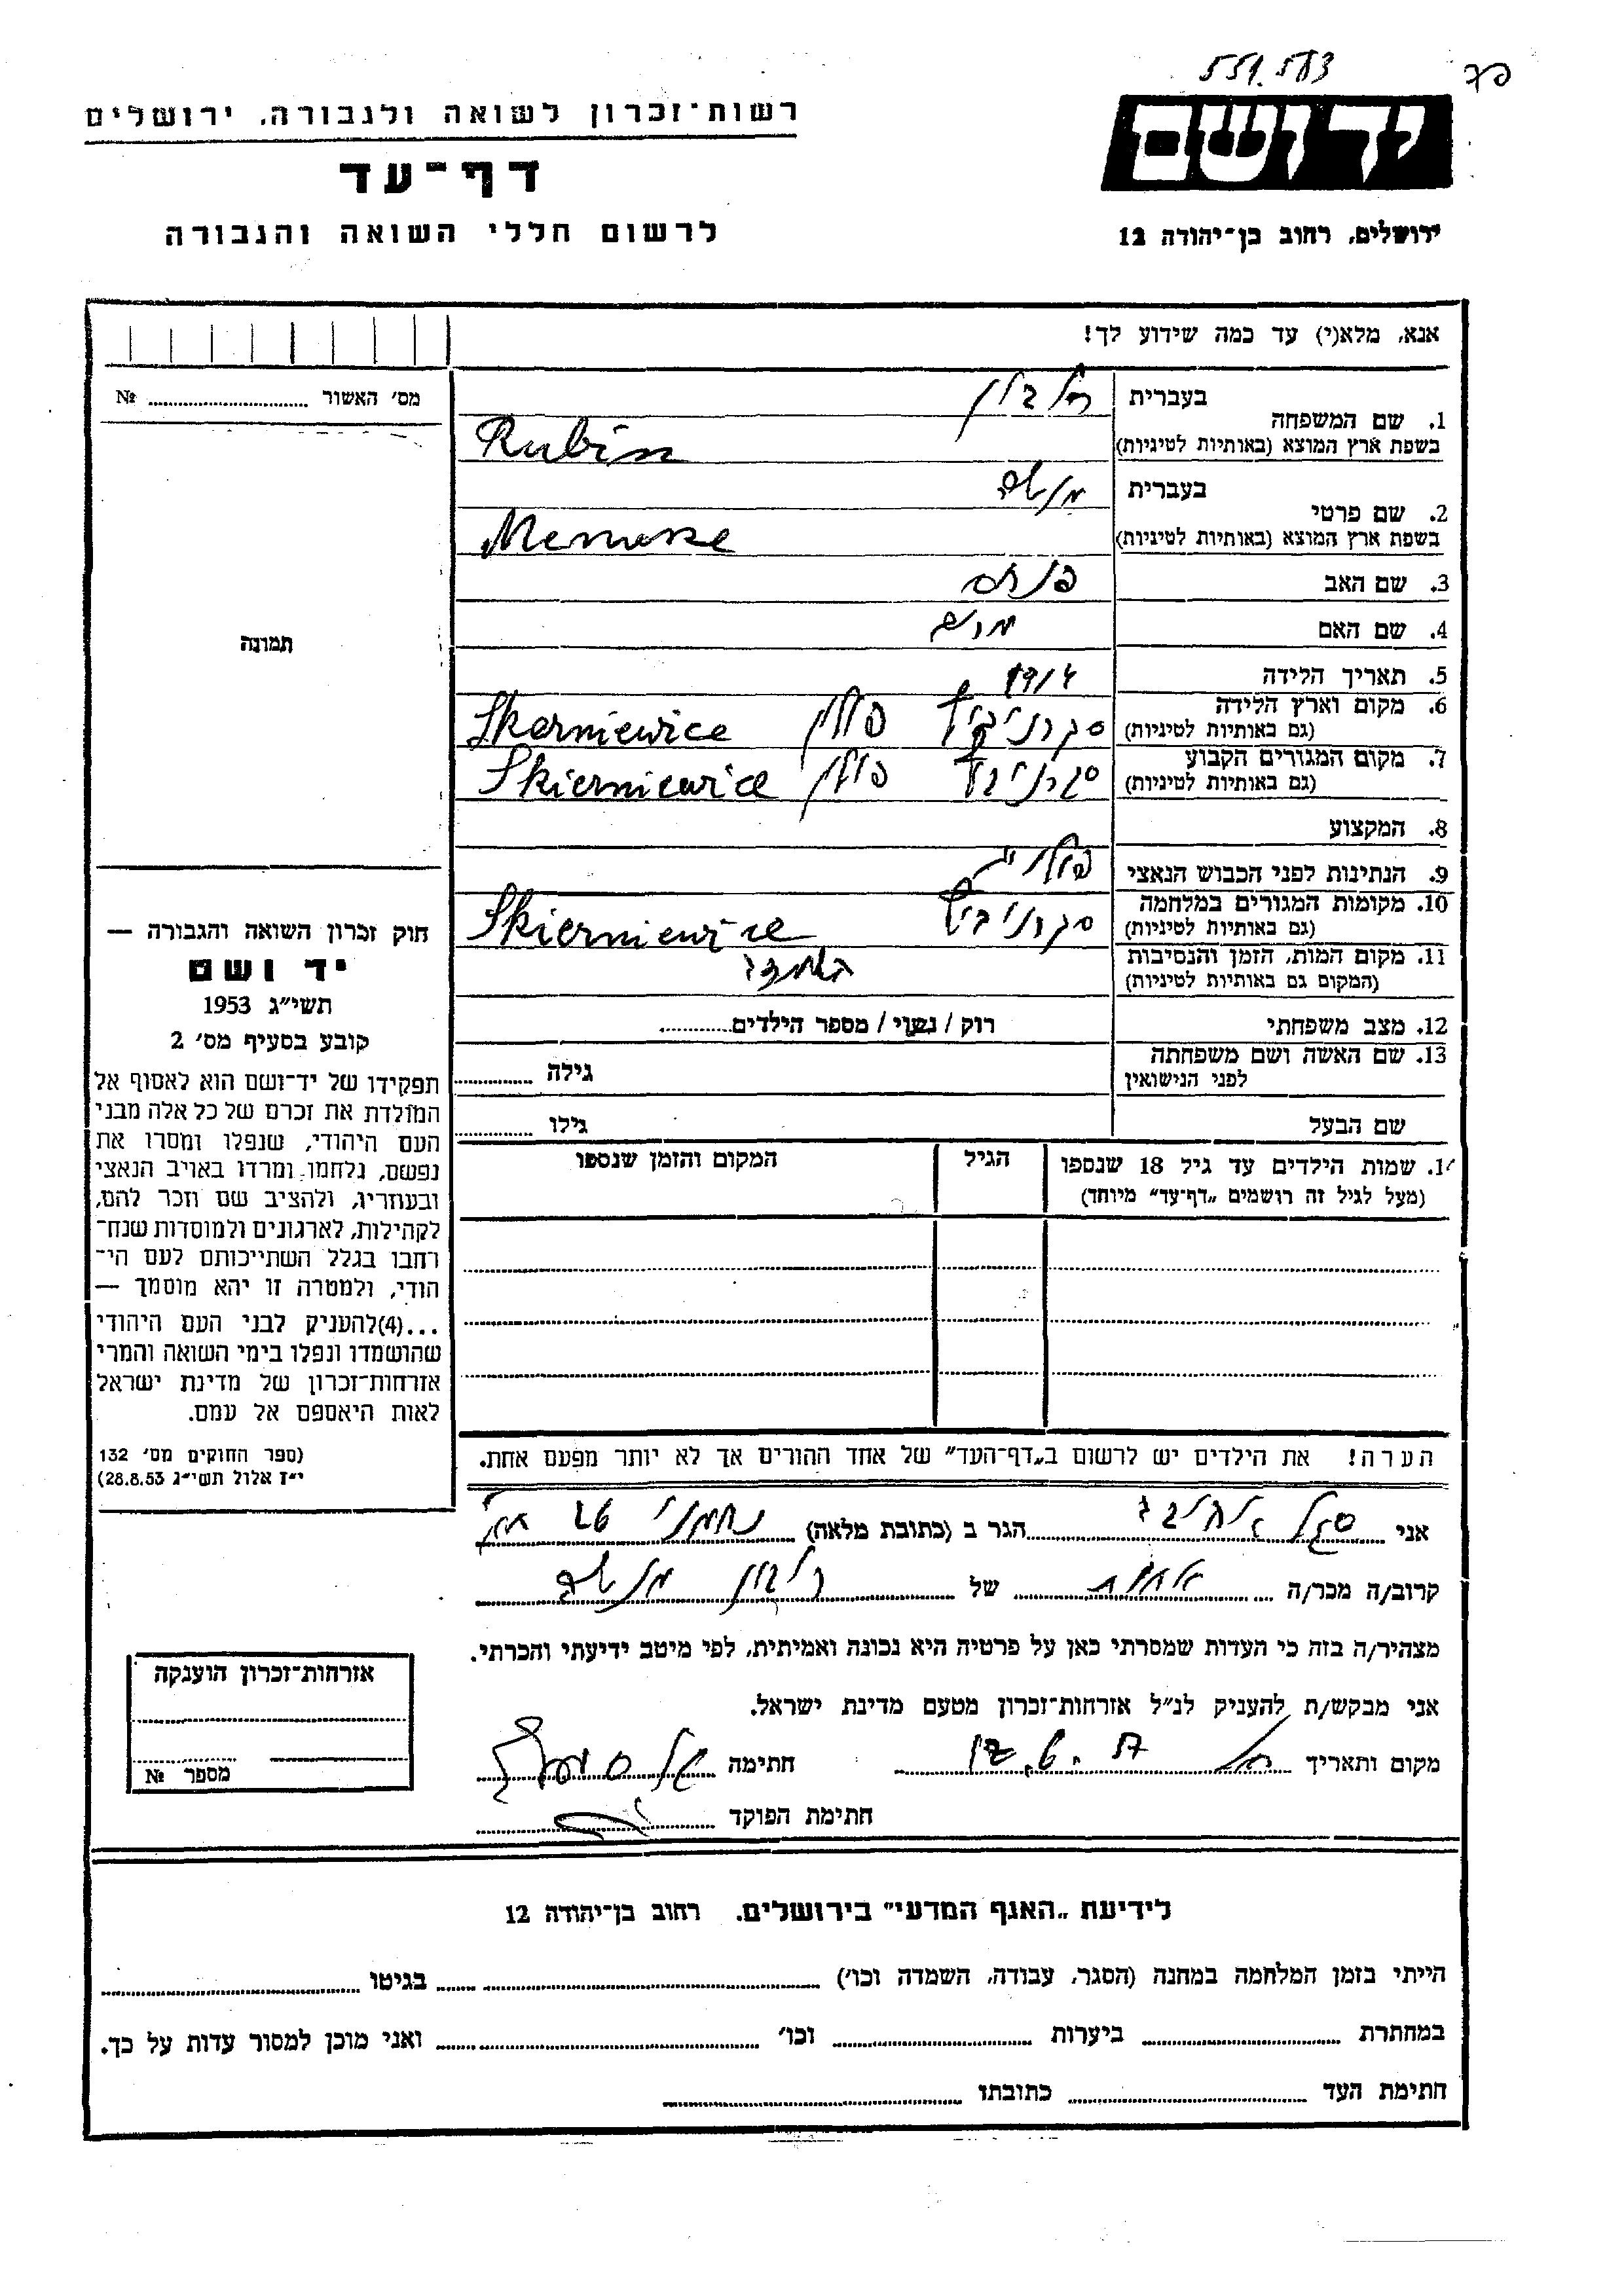 551.583
רשות-זכרון לשואה ולגבורה, ירושלים
יד ושם
דף-עד
לרשום חללי השואה והגבורה
ירושלים, רחוב בן-יהודה 12
אנא, מלא(י) עד כמה שידוע לך!
1. שם המשפחה
בעברית רובין
בשפת ארץ המוצא (באותיות לטיניות) Rubin
2. שם פרטי
בעברית
בשפת ארץ המוצא (באותיות לטיניות)
3. שם האב פנחס
4. שם האם
5. תאריך הלידה
6. מקום וארץ הלידה
(גם באותיות לטיניות) פולין Skerniewice
7. מקום המגורים הקבוע
(גם באותיות לטיניות) פולין Skierniewice
8. המקצוע
9. הנתינות לפני הכבוש הנאצי
10. מקומות המגורים במלחמה
(גם באותיות לטיניות) Skierniewice
11. מקום המות, הזמן והנסיבות
(המקום גם באותיות לטיניות)
12. מצב משפחתי רוק / נשוי / מספר הילדים
13. שם האשה ושם משפחתה
לפני הנישואין גילה
שם הבעל גילו
14. שמות הילדים עד גיל 18 שנספו
(מעל לגיל זה רושמים „דף-עד" מיוחד)
הגיל
המקום והזמן שנספו
מס' האשור №
תמונה
חוק זכרון השואה והגבורה —
יד ושם
תשי"ג 1953
קובע בסעיף מס' 2
תפקידו של יד-ושם הוא לאסוף אל
המולדת את זכרם של כל אלה מבני
העם היהודי, שנפלו ומסרו את
נפשם, נלחמו ומרדו באויב הנאצי
ובעוזריו, ולהציב שם וזכר להם,
לקהילות, לארגונים ולמוסדות שנח-
רחבו בגלל השתייכותם לעם הי-
הודי, ולמטרה זו יהא מוסמך —
...(4)להעניק לבני העם היהודי
שהושמדו ונפלו בימי השואה והמרי
אזרחות-זכרון של מדינת ישראל
לאות היאספם אל עמם.
(ספר החוקים מס' 132
י"ז אלול תשי"ג 28.8.53)
הערה! את הילדים יש לרשום ב„דף-העד" של אחד ההורים אך לא יותר מפעם אחת.
אני סגל הגר ב (כתובת מלאה) נחמני
קרוב/ה מכר/ה אחות של רובין
מצהיר/ה בזה כי העדות שמסרתי כאן על פרטיה היא נכונה ואמיתית, לפי מיטב ידיעתי והכרתי.
אני מבקש/ת להעניק לנ"ל אזרחות-זכרון מטעם מדינת ישראל.
מקום ותאריך חתימה
חתימת הפוקד
אזרחות-זכרון הוענקה
מספר №
לידיעת „האגף המדעי" בירושלים. רחוב בן-יהודה 12
הייתי בזמן המלחמה במחנה (הסגר, עבודה, השמדה וכו') בגיטו
במחתרת ביערות וכו' ואני מוכן למסור עדות על כך.
חתימת העד כתובתו